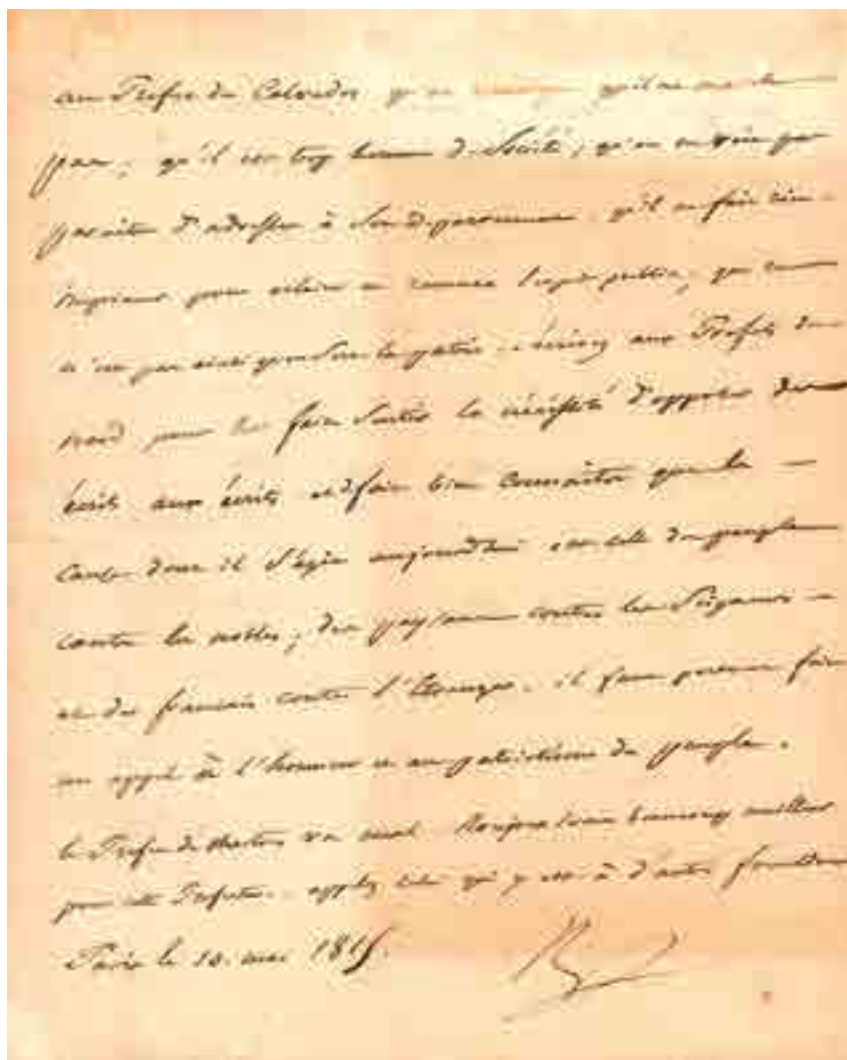 au Préfet du Calvados qu'il ne marche
pas; qu'il est trop homme de Société; qu'on ne voit pas
paraître d'adresses à Son département, qu'il ne fait rien
imprimer pour éclairer et remuer l'esprit public; que
n'est pas ainsi qu'on Sert la patrie. écrivez aux Préfets du
nord pour leur faire Sentir la nécessité d'opposer des
écrits aux écrits et de faire bien connaître que la
cause dont il S'agit aujourd'hui est celle du peuple
contre les nobles; des paysans contre les Seigneurs
et des français contre l'Etranger. il faut partout faire
un appel à l'honneur et au patriotisme du peuple.
le Préfet de va mal. beaucoup meilleur
pour cette Préfecture. appelez celui qui y est à d'autres fonctions
Paris le 10. mai 1815.